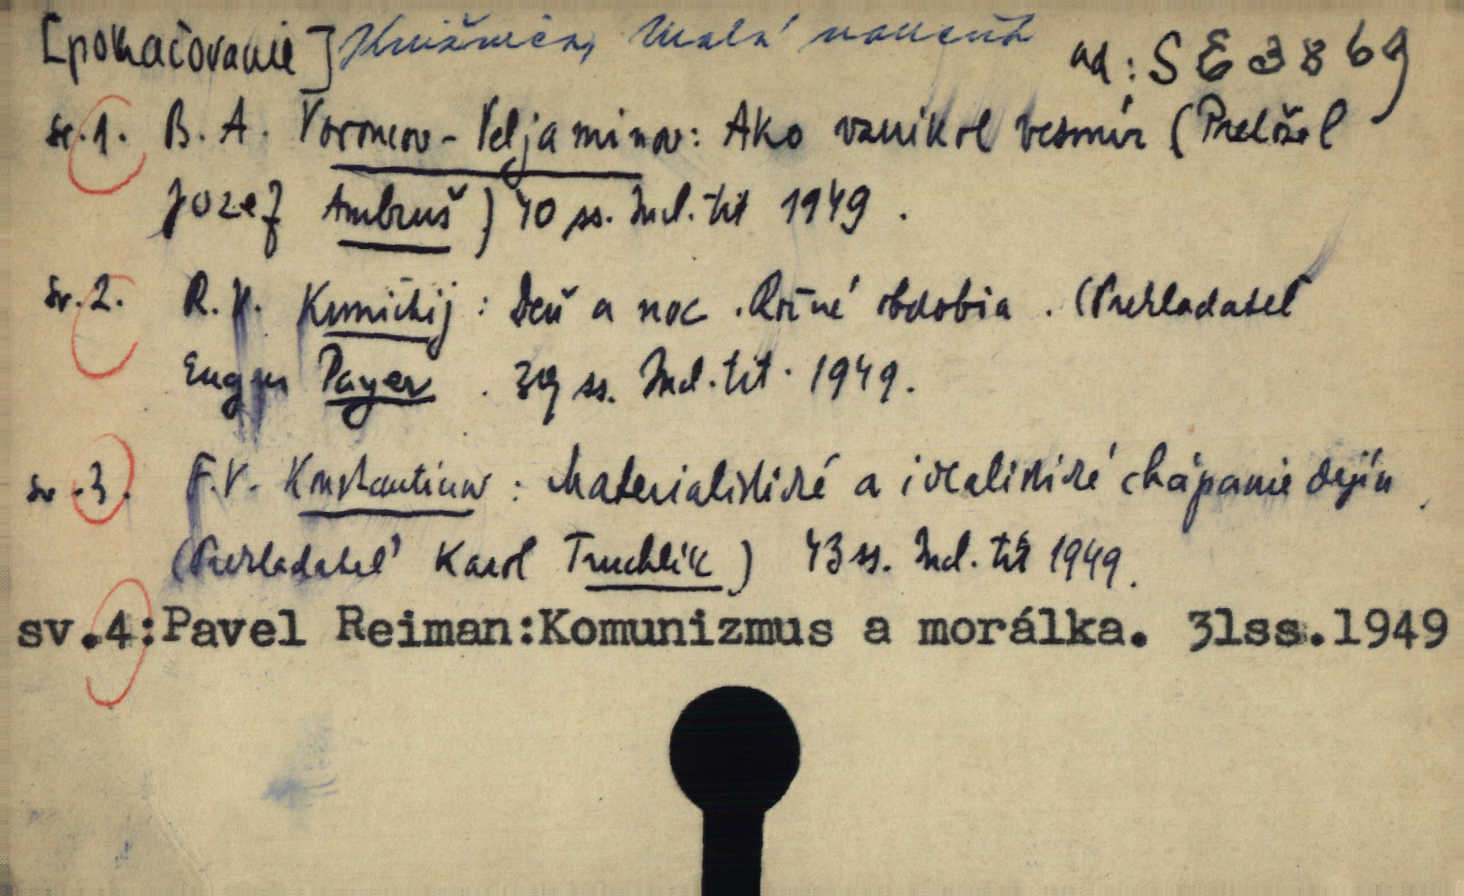 [pokračovanie] Knižnica, Malá náučná ad: SE 3869
sv. 1. B. A. Voroncov-Veljaminov: Ako vznikol vesmír (Preložil
Jozef Ambruš) 40 ss. Ind. tit 1949.
sv. 2. R. V. Kunickij: Deň a noc. Ročné obdobia. (Prekladateľ
Eugen Payer. 39 ss. Ind. tit. 1949.
sv. 3. F. V. Konstantinov: Materialistické a idealistické chápanie dejín.
(Prekladateľ Karol Truchlík) 43 ss. Ind. tit 1949.
sv.4:Pavel Reiman:Komunizmus a morálka. 31ss.1949